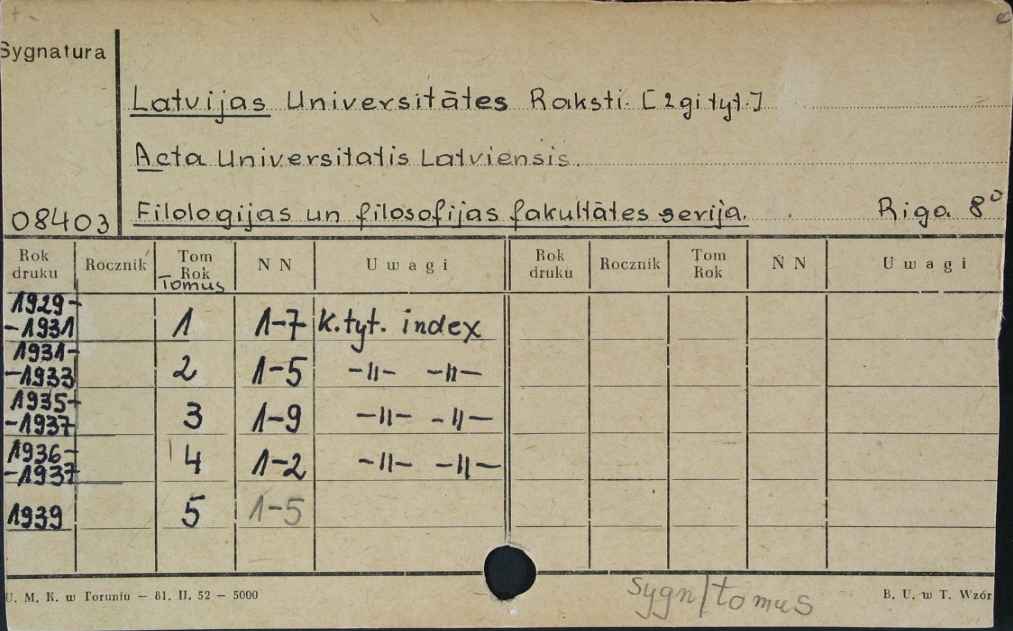 Sygnatura
Latvijas Universitātes Raksti. [2gi tyt.]
Acta Universitatis Latviensis.
08403 Filologijas un filosofijas fakultātes serija. Riga 8°
Rok druku Rocznik Tom Rok Tomus N N Uwagi Rok druku Rocznik Tom Rok N N Uwagi
1929-
-1931 1 1-7 k.tyt. index
1931-
-1933 2 1-5 -"- -"-
1935-
-1937 3 1-9 -"- -"-
1936-
-1937 4 1-2 -"- -"-
1939 5 1-5
sygn/tomus
U. M. K. w Toruniu — 81. II. 52 — 5000 B. U. w T. Wzór